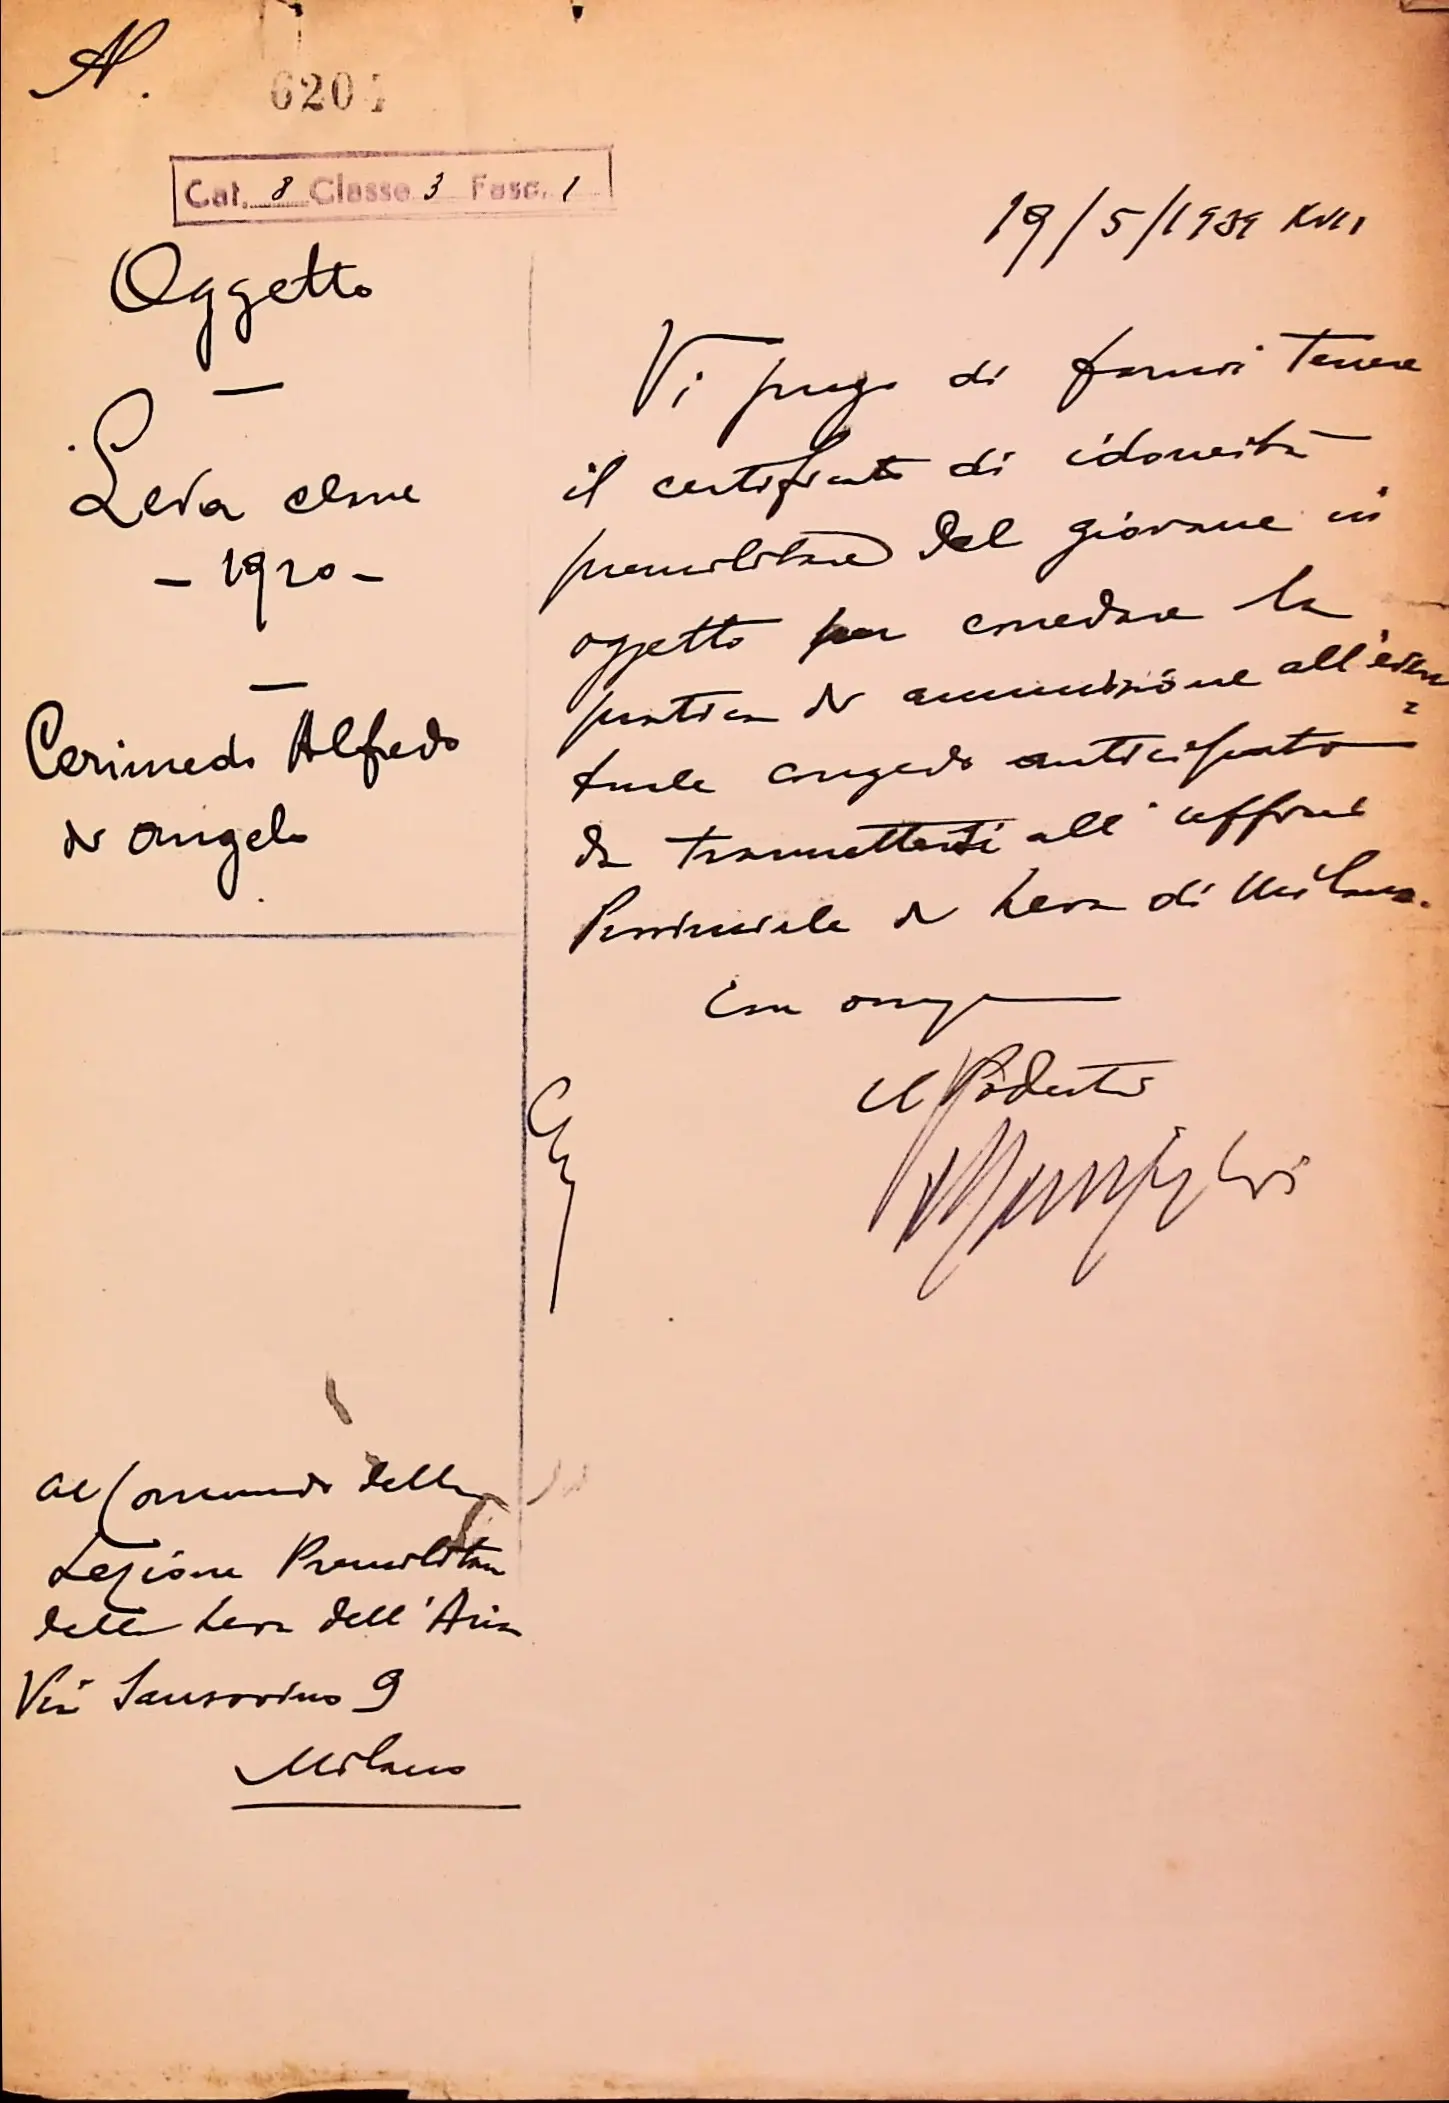 N. 6201
Cat. 8 Classe 3 Fasc. 1
19/5/1939 XVII
Oggetto
Leva classe
- 1920 -
Cerimedo Alfredo
di Angelo
Vi prego di farmi tenere
il certificato di idoneità
premilitare del giovane in
oggetto per corredare la
pratica di ammissione all'even
tuale congedo anticipato
da trasmettersi all'ufficio
Provinciale di Leva di Milano.
Con ossequi
Il Podestà
Al Comando della
Legione Premilitare
della Leva dell'Aria
Via Sansovino 9
Milano